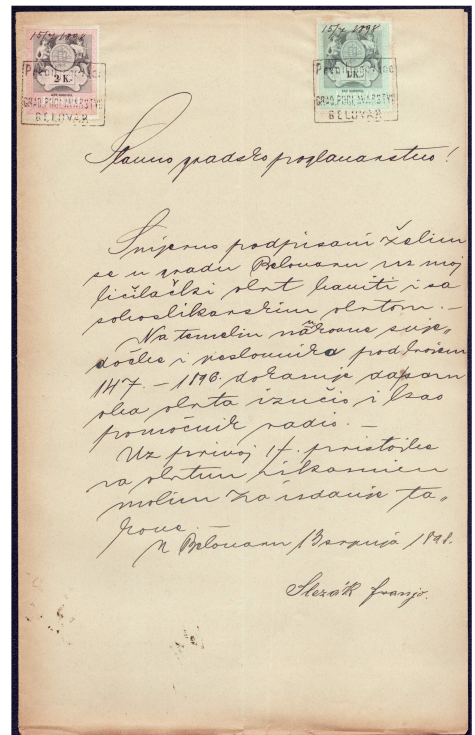 15/7 1898
2 K.
GRAD. POGLAVARSTVO
BELOVAR
15/7 1898
1 K.
GRAD. POGLAVARSTVO
BELOVAR
Slavno gradsko poglavarstvo!
Smjerno podpisani želim
se u gradu Belovaru uz moj
ličilački obrt baviti i sa
soboslikarskim obrtom. –
Na temelju naukovne svje-
dočbe i poslovnika pod brojem
147. – 1896. dokazuje da sam
oba obrta izučio i kao
pomoćnik radio. –
Uz privoj 1 f. pristojbe
za obrtnu iskaznicu
molim za izdanje ta-
kove. –
U Belovaru 13 srpnja 1898.
Slezák Franjo.